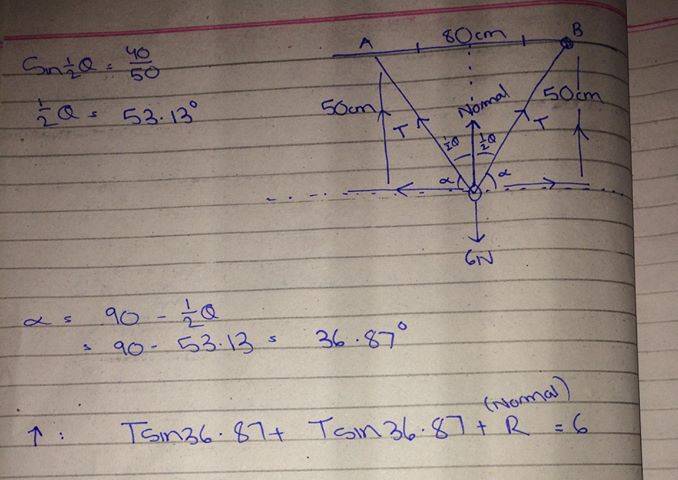 Sin ½Q = 40/50
½Q = 53.13°
A 80cm B
50cm T Normal T 50cm
½Q ½Q
α α
6N
α = 90 - ½Q
= 90 - 53.13 = 36.87°
(Normal)
↑ : Tsin36.87 + Tsin36.87 + R = 6